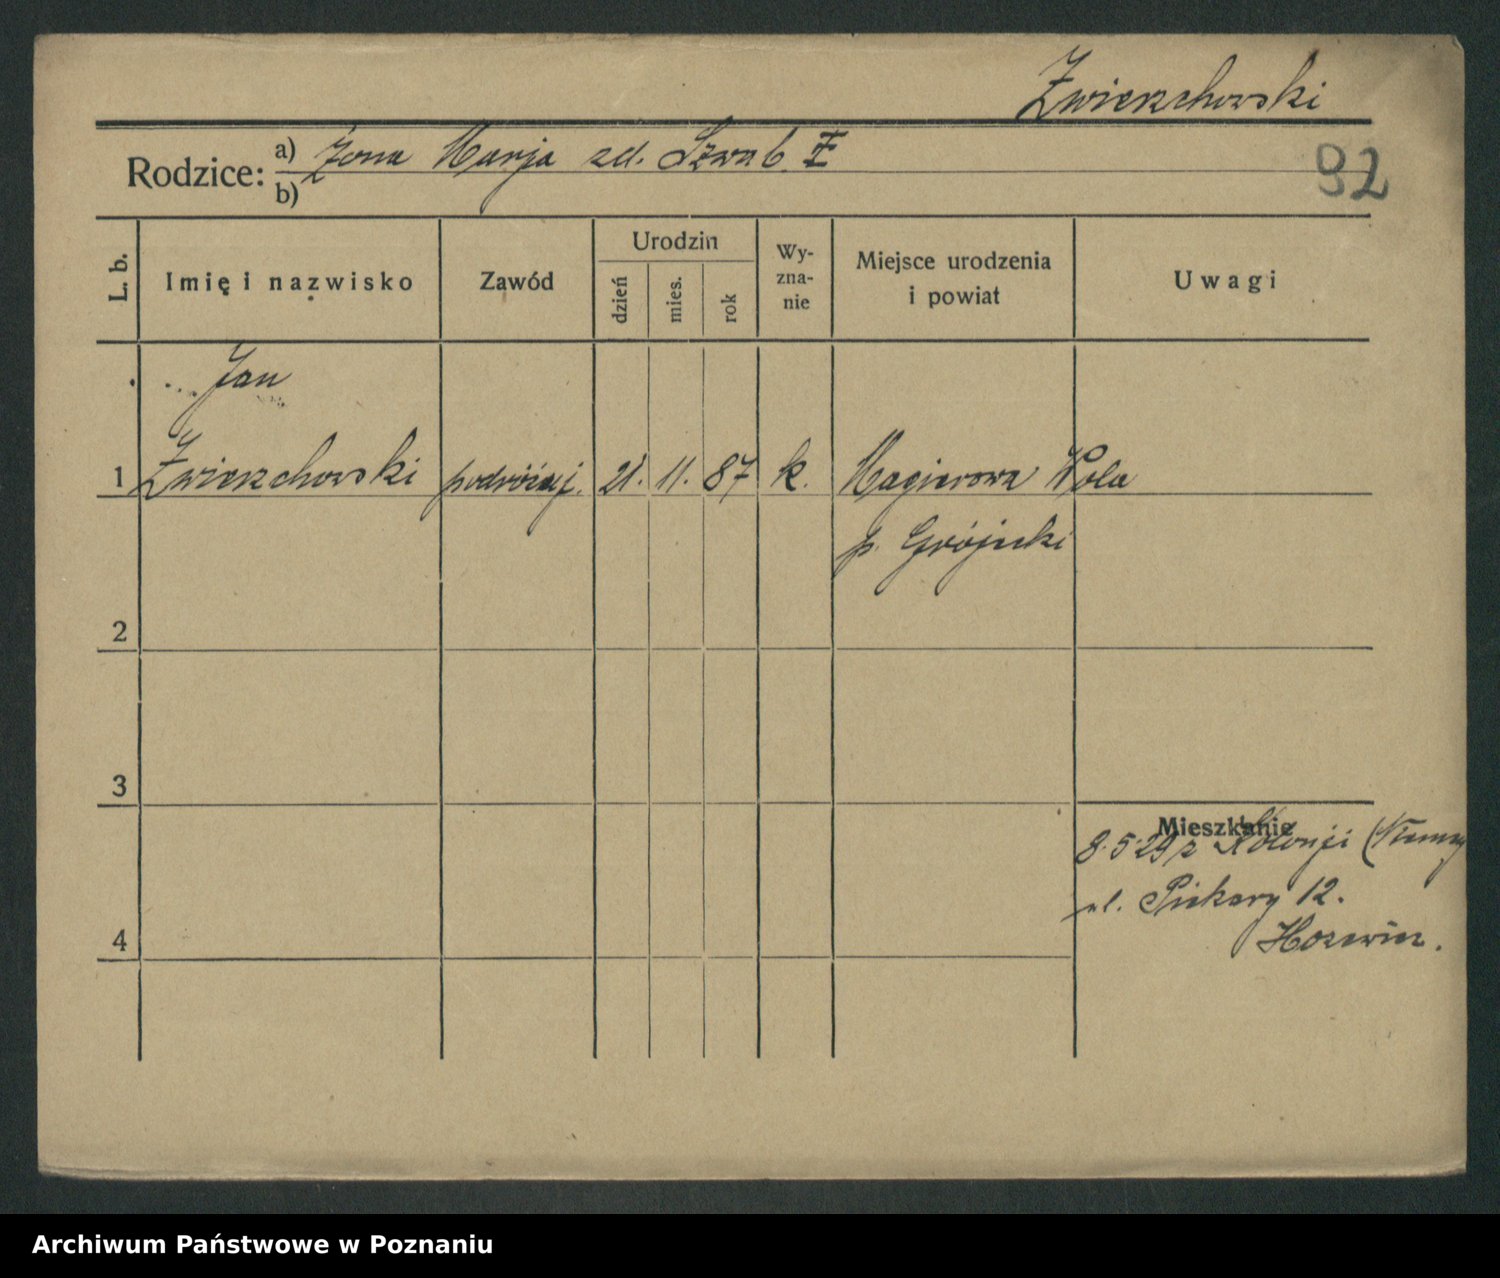 Zwierzchowski
Rodzice: a) Żona Marja zd. Szwab. E
b)
92
L. b.
Imię i nazwisko
Zawód
Urodzin
dzień
mies.
rok
Wy-
zna-
nie
Miejsce urodzenia
i powiat
Uwagi
Jan
1 Zwierzchowski podróżuj. 21. 11. 87 k. Magierowa Wola
p. Grójecki
2
3
Mieszkanie
8.5.29 z Kolonji (Niemcy
ul. Piekary 12.
4
Archiwum Państwowe w Poznaniu